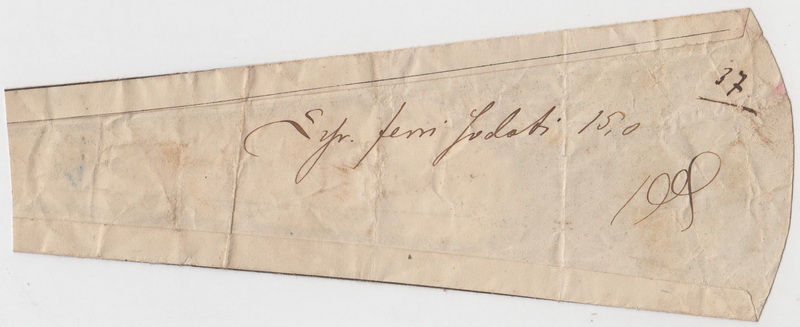 37
Syr. ferri jodati 15,0